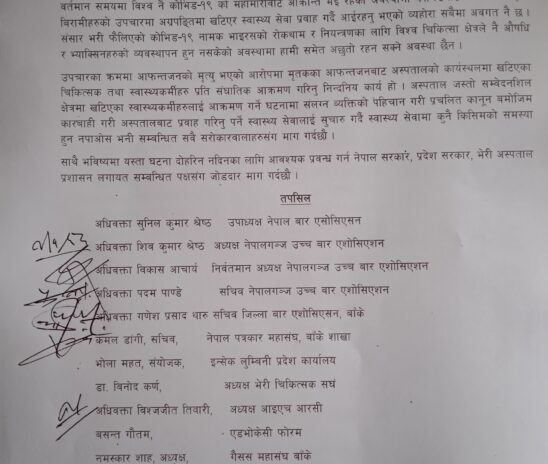 वर्तमान समयमा विश्व नै कोभिड-१९ को महामारीबाट आक्रान्त भई रहेको
बिरामीहरुको उपचारमा अग्रपङ्तिमा खटिएर स्वास्थ्य सेवा प्रवाह गर्दै आईरहनु भएको व्यहोरा सबैमा अवगत नै छ ।
संसार भरी फैलिएको कोभिड-१९ नामक भाइरसको रोकथाम र नियन्त्रणका लागि विश्व चिकित्सा क्षेत्रले नै औषधि
र भ्याक्सिनहरुको व्यवस्थापन हुन नसकेको अवस्थामा हामी समेत अछुतो रहन सक्ने अवस्था छैन ।
उपचारका क्रममा आफन्तजनको मृत्यु भएको आरोपमा मृतकका आफन्तजनबाट अस्पतालको कार्यस्थलमा खटिएका
चिकित्सक तथा स्वास्थ्यकर्मीहरु प्रति संघातिक आक्रमण गरिनु निन्दनिय कार्य हो । अस्पताल जस्तो सम्वेदनशिल
क्षेत्रमा खटिएका स्वास्थ्यकर्मीहरुलाई आक्रमण गर्ने घटनामा संलग्न व्यक्तिको पहिचान गरी प्रचलित कानून बमोजिम
कारबाही गरी अस्पतालबाट प्रवाह गरिनु पर्ने स्वास्थ्य सेवालाई सुचारु गर्दै स्वास्थ्य सेवामा कुनै किसिमको समस्या
हुन नपाओस भनी सम्बन्धित सबै सरोकारवालाहरुसंग माग गर्दछौ ।
साथै भविष्यमा यस्ता घटना दोहरिन नदिनका लागि आवश्यक प्रवन्ध गर्न नेपाल सरकार, प्रदेश सरकार, भेरी अस्पताल
प्रशासन लगायत सम्बन्धित पक्षसंग जोडदार माग गर्दछौ ।
तपसिल
अधिवक्ता सुनिल कुमार श्रेष्ठ उपाध्यक्ष नेपाल बार एसोसिएसन
अधिवक्ता शिव कुमार श्रेष्ठ अध्यक्ष नेपालगञ्ज उच्च बार एशोसिएशन
अधिवक्ता विकास आचार्य निवंतमान अध्यक्ष नेपालगञ्ज उच्च बार एशोसिएशन
अधिवक्ता पदम पाण्डे सचिव नेपालगञ्ज उच्च बार एशोसिएशन
अधिवक्ता गणेश प्रसाद थारु सचिव जिल्ला बार एशोसिएसन, बाँके
कमल डांगी, सचिव, नेपाल पत्रकार महासंघ, बाँके शाखा
भोला महत, संयोजक, इन्सेक लुम्विनी प्रदेश कार्यालय
डा. विनोद कर्ण, अध्यक्ष भेरी चिकित्सक सघं
अधिवक्ता विश्वजीत तिवारी, अध्यक्ष आइएच आरसी
वसन्त गौतम, एडभोकेसी फोरम
नमस्कार शाह, अध्यक्ष, गैसस महासंघ बाँके